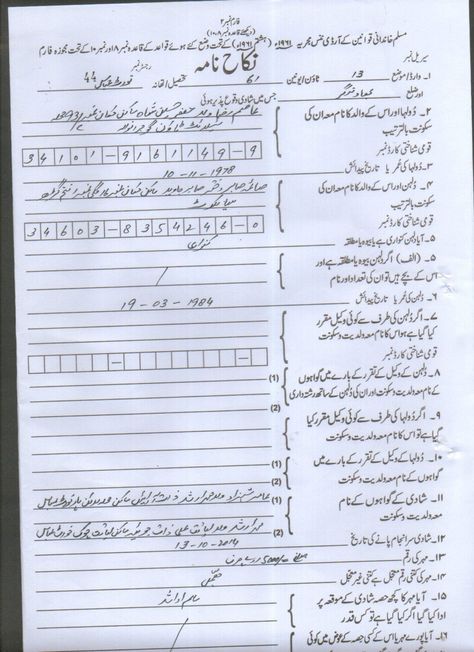 فارم نمبر ۲
(دیکھئے قاعدہ ۸، ۱۰)
مسلم خاندانی قوانین کے آرڈی ننس مجریہ ۱۹۶۱ء (ہشتم ۱۹۶۱ء) کے تحت وضع کئے ہوئے قواعد کے قاعدہ نمبر ۸ اور نمبر ۱۰ کے تحت مجوزہ فارم
نکاح نامہ
سیریل نمبر رجسٹر نمبر 44
۱۔ وارڈ / موضع 13 ٹاؤن / یونین 61 تحصیل / تھانہ فورٹ عباس
اور ضلع بہاولنگر جس میں شادی وقوع پذیر ہوئی
۲۔ دولہا اور اس کے والد کا نام معہ ان کی
سکونت بالترتیب
قومی شناختی کارڈ نمبر 34101-9161149-9
۳۔ دولہا کی عمر یا تاریخ پیدائش 10-11-1978
۴۔ دلہن اور اس کے والد کا نام معہ ان کی
سکونت بالترتیب سیالکوٹ
قومی شناختی کارڈ نمبر 34603-8354246-0
۵۔ آیا دلہن کنواری ہے یا بیوہ یا مطلقہ کنواری
۵۔ (الف) اگر دلہن بیوہ یا مطلقہ ہے اور
اس کے بچے ہیں تو ان کی تعداد اور نام /
۶۔ دلہن کی عمر یا تاریخ پیدائش 19-03-1984
۷۔ اگر دلہن کی طرف سے کوئی وکیل مقرر
کیا گیا ہے تو اس کا نام معہ ولدیت و سکونت
قومی شناختی کارڈ نمبر
۸۔ دلہن کے وکیل کے تقرر کے بارے میں گواہوں (1)
کے نام معہ ولدیت و سکونت اور ان کی دلہن کے ساتھ رشتہ داری (2)
۹۔ اگر دولہا کی طرف سے کوئی وکیل مقرر کیا
گیا ہے تو اس کا نام معہ ولدیت و سکونت
۱۰۔ دولہا کے وکیل کے تقرر کے بارے میں (1)
گواہوں کے نام معہ ولدیت و سکونت (2)
۱۱۔ شادی کے گواہوں کے نام (1)
معہ ولدیت و سکونت (2)
۱۲۔ شادی سرانجام پانے کی تاریخ 13-10-2014
۱۳۔ مہر کی رقم مبلغ 5000/- روپے صرف
۱۴۔ مہر کی کتنی رقم معجل ہے کتنی غیر معجل معجل
۱۵۔ آیا مہر کا کچھ حصہ شادی کے موقعہ پر
ادا کیا گیا اگر کیا گیا ہے تو کس قدر
۱۶۔ آیا پورے مہر یا اس کے کسی حصہ کے عوض میں کوئی